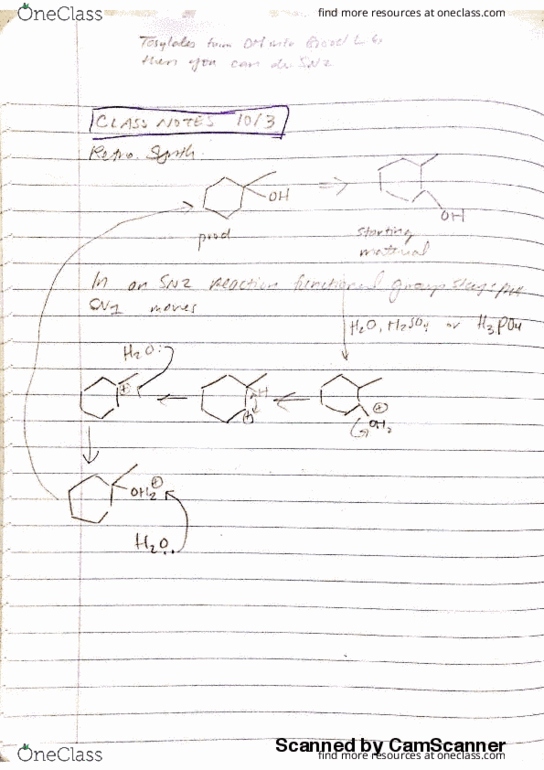 OneClass
find more resources at oneclass.com
Tosylates turn OH into Good L G,
then you can do SN2
CLASS NOTES 10/3
Retro. Synth.
OH
OH
prod
starting
material
In an SN2 reaction functional group stays put
SN1 moves
H2O, H2SO4 or H3PO4
H2O:
⊕
H
⊕
⊕
OH2
OH2 ⊕
H2O
Scanned by CamScanner
OneClass
find more resources at oneclass.com